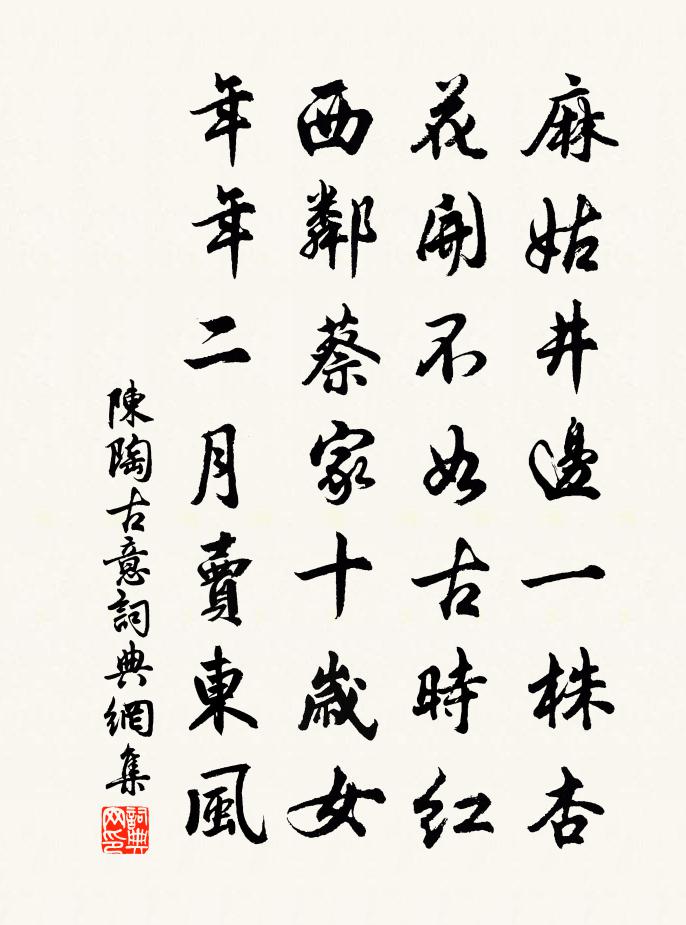 麻姑井邊一株杏
花開不如古時紅
西鄰蔡家十歲女
年年二月賣東風
陳陶古意詞典網集
詞典网印